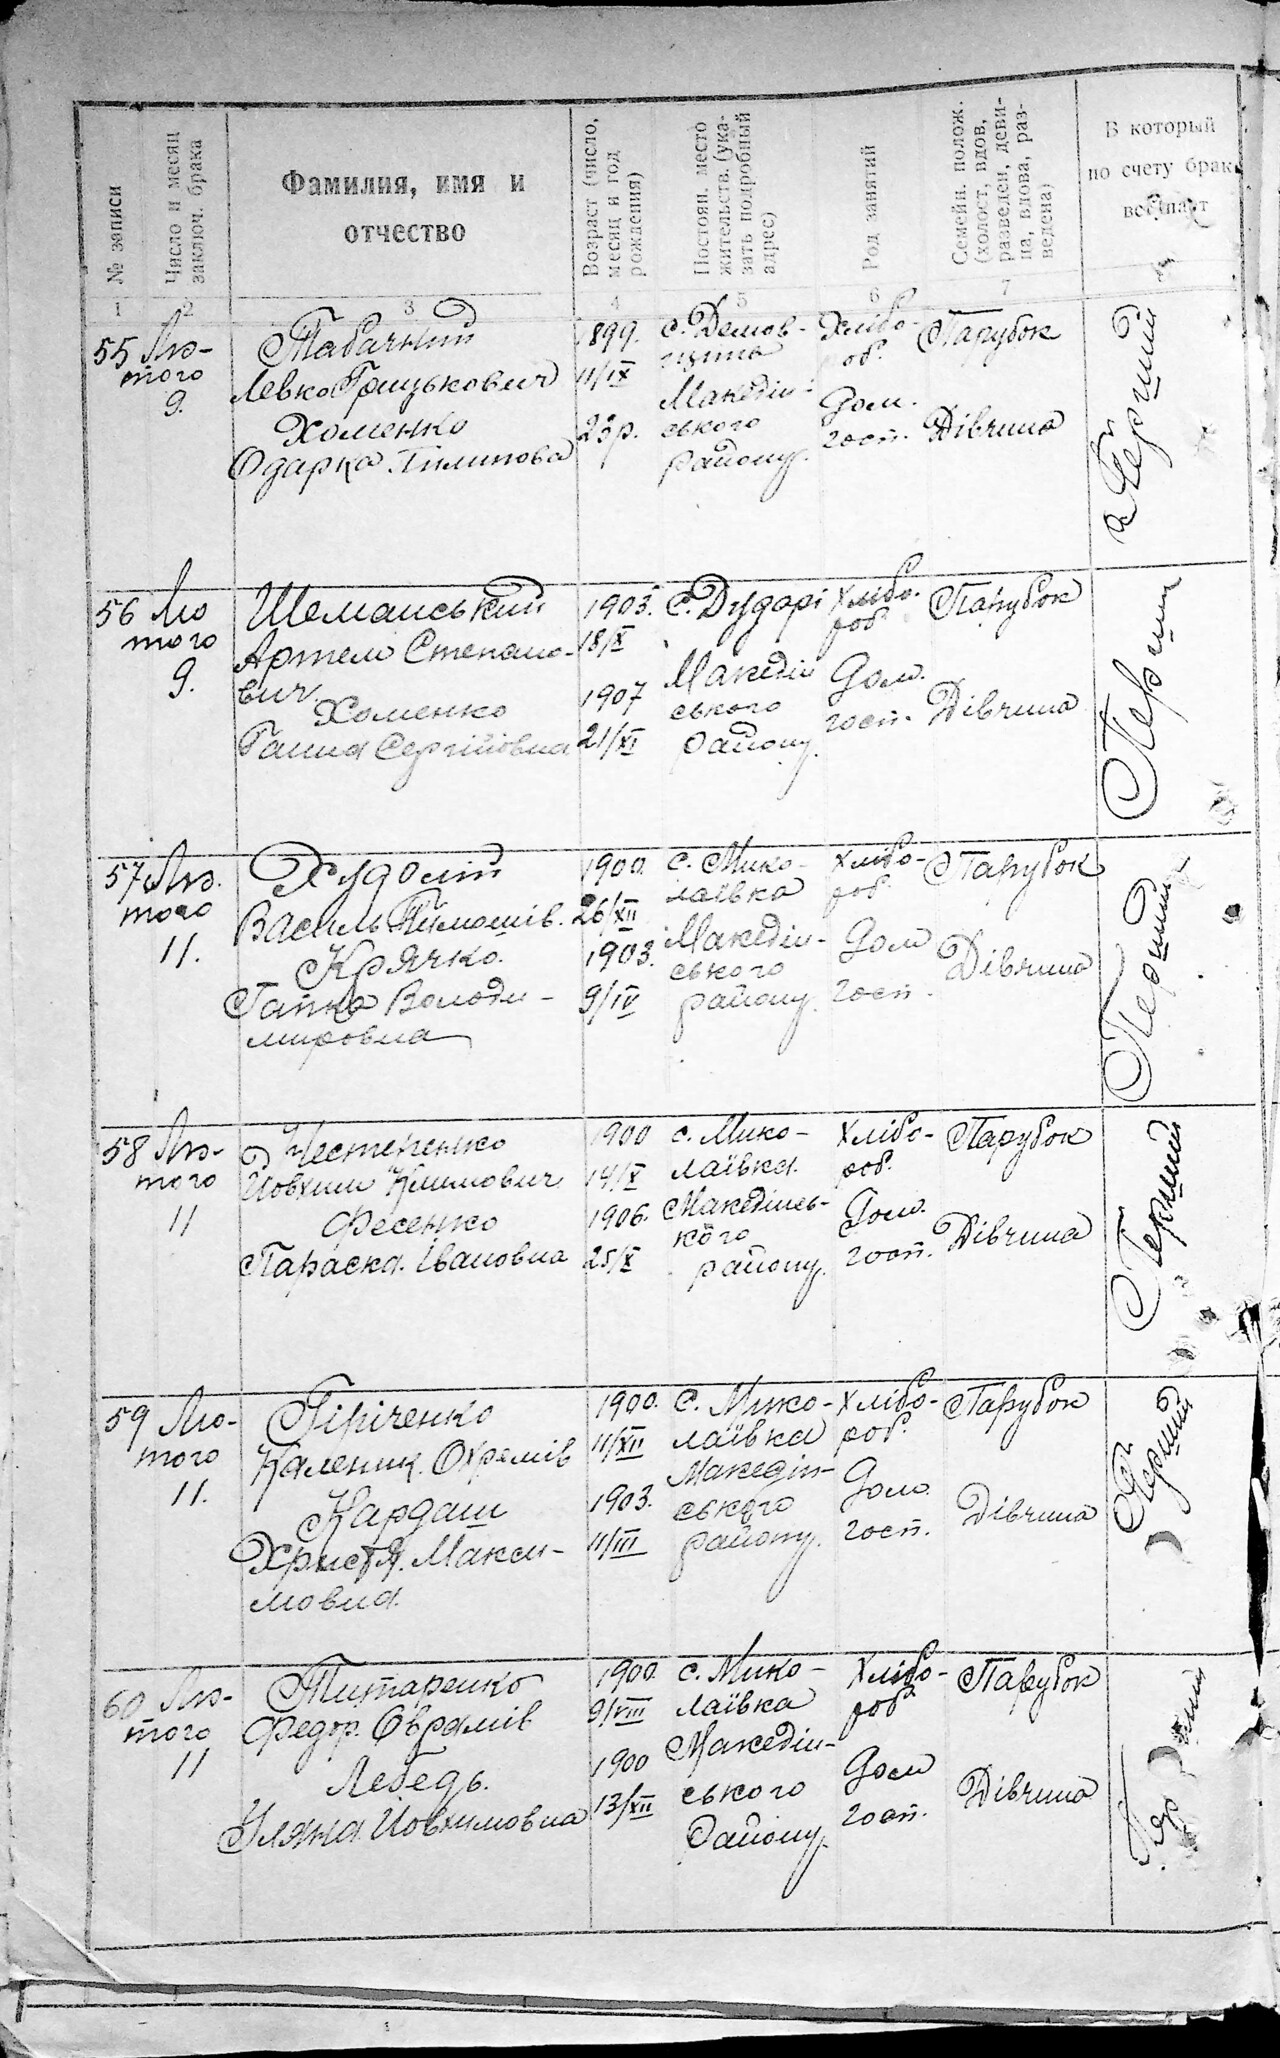 № записи
Число и месяц
заключ. брака
Фамилия, имя и
отчество
Возраст (число,
месяц и год
рождения)
Постоян. место
жительств. (ука-
зать подробный
адрес)
Род занятий
Семейн. полож.
(холост, вдов,
разведен, деви-
ца, вдова, раз-
ведена)
В который
по счету брак
вступает
1 2 3 4 5 6 7
55 Лю-
того
9.
Табачний
Левко Грицькович
Хоменко
Одарка
1899.
11/IX
23р.
с.
Македін-
ського
району.
Хлібо-
роб.
Дом.
госп.
Парубок
Дівчина
Перший
56 Лю
того
9.
Шеманський
Артем Степано-
вич
Хоменко
Ганна Сергійовна
1903.
18/X
1907
21/XI
с. Дударі
Македін
ського
району.
Хлібо-
роб.
Дом.
госп.
Парубок
Дівчина
Перший
57 Лю.
того
11.
Худолій
Василь Тимошів.
Крячко.
Гапка Володи-
мировна
1900.
26/XII
1903.
9/IV
с. Мико-
лаївка
Македін-
ського
району.
Хлібо-
роб.
Дом
госп.
Парубок
Дівчина
Перший
58 Лю-
того
11
Нестеренко
Йовхим Климович
Фесенко
Параска Івановна
1900
14/X
1906.
25/X
с. Мико-
лаївка.
Македінсь-
кого
району.
Хлібо-
роб.
Дом.
госп.
Парубок
Дівчина
Перший
59 Лю-
того
11.
Піріченко
Каленик Охремів
Кардаш
Христя Макси-
мовна.
1900.
11/XII
1903.
11/III
с. Мико-
лаївка
Македін-
ського
району.
Хлібо-
роб.
Дом.
госп.
Парубок
Дівчина
Перший
60 Лю-
того
11
Титаренко
Федор. Оврамів
Лебедь.
Уляна Йовхимовна
1900.
9/VIII
1900
13/XII
с. Мико-
лаївка
Македін-
ського
району.
Хлібо-
роб.
Дом
госп.
Парубок
Дівчина
Перший